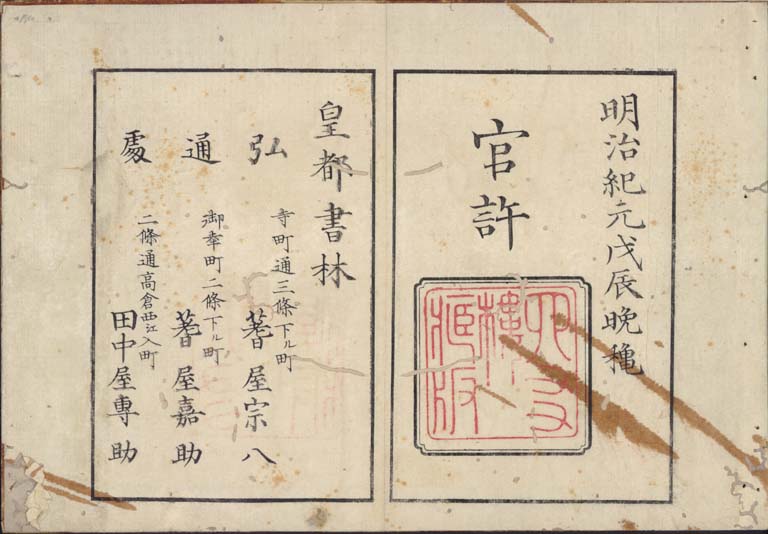 明治紀元戊辰晩穐
官許
皇都書林
弘
寺町通三條下ル町
蓍屋宗八
通
御幸町二條下ル町
蓍屋嘉助
處
二條通高倉西江入町
田中屋專助